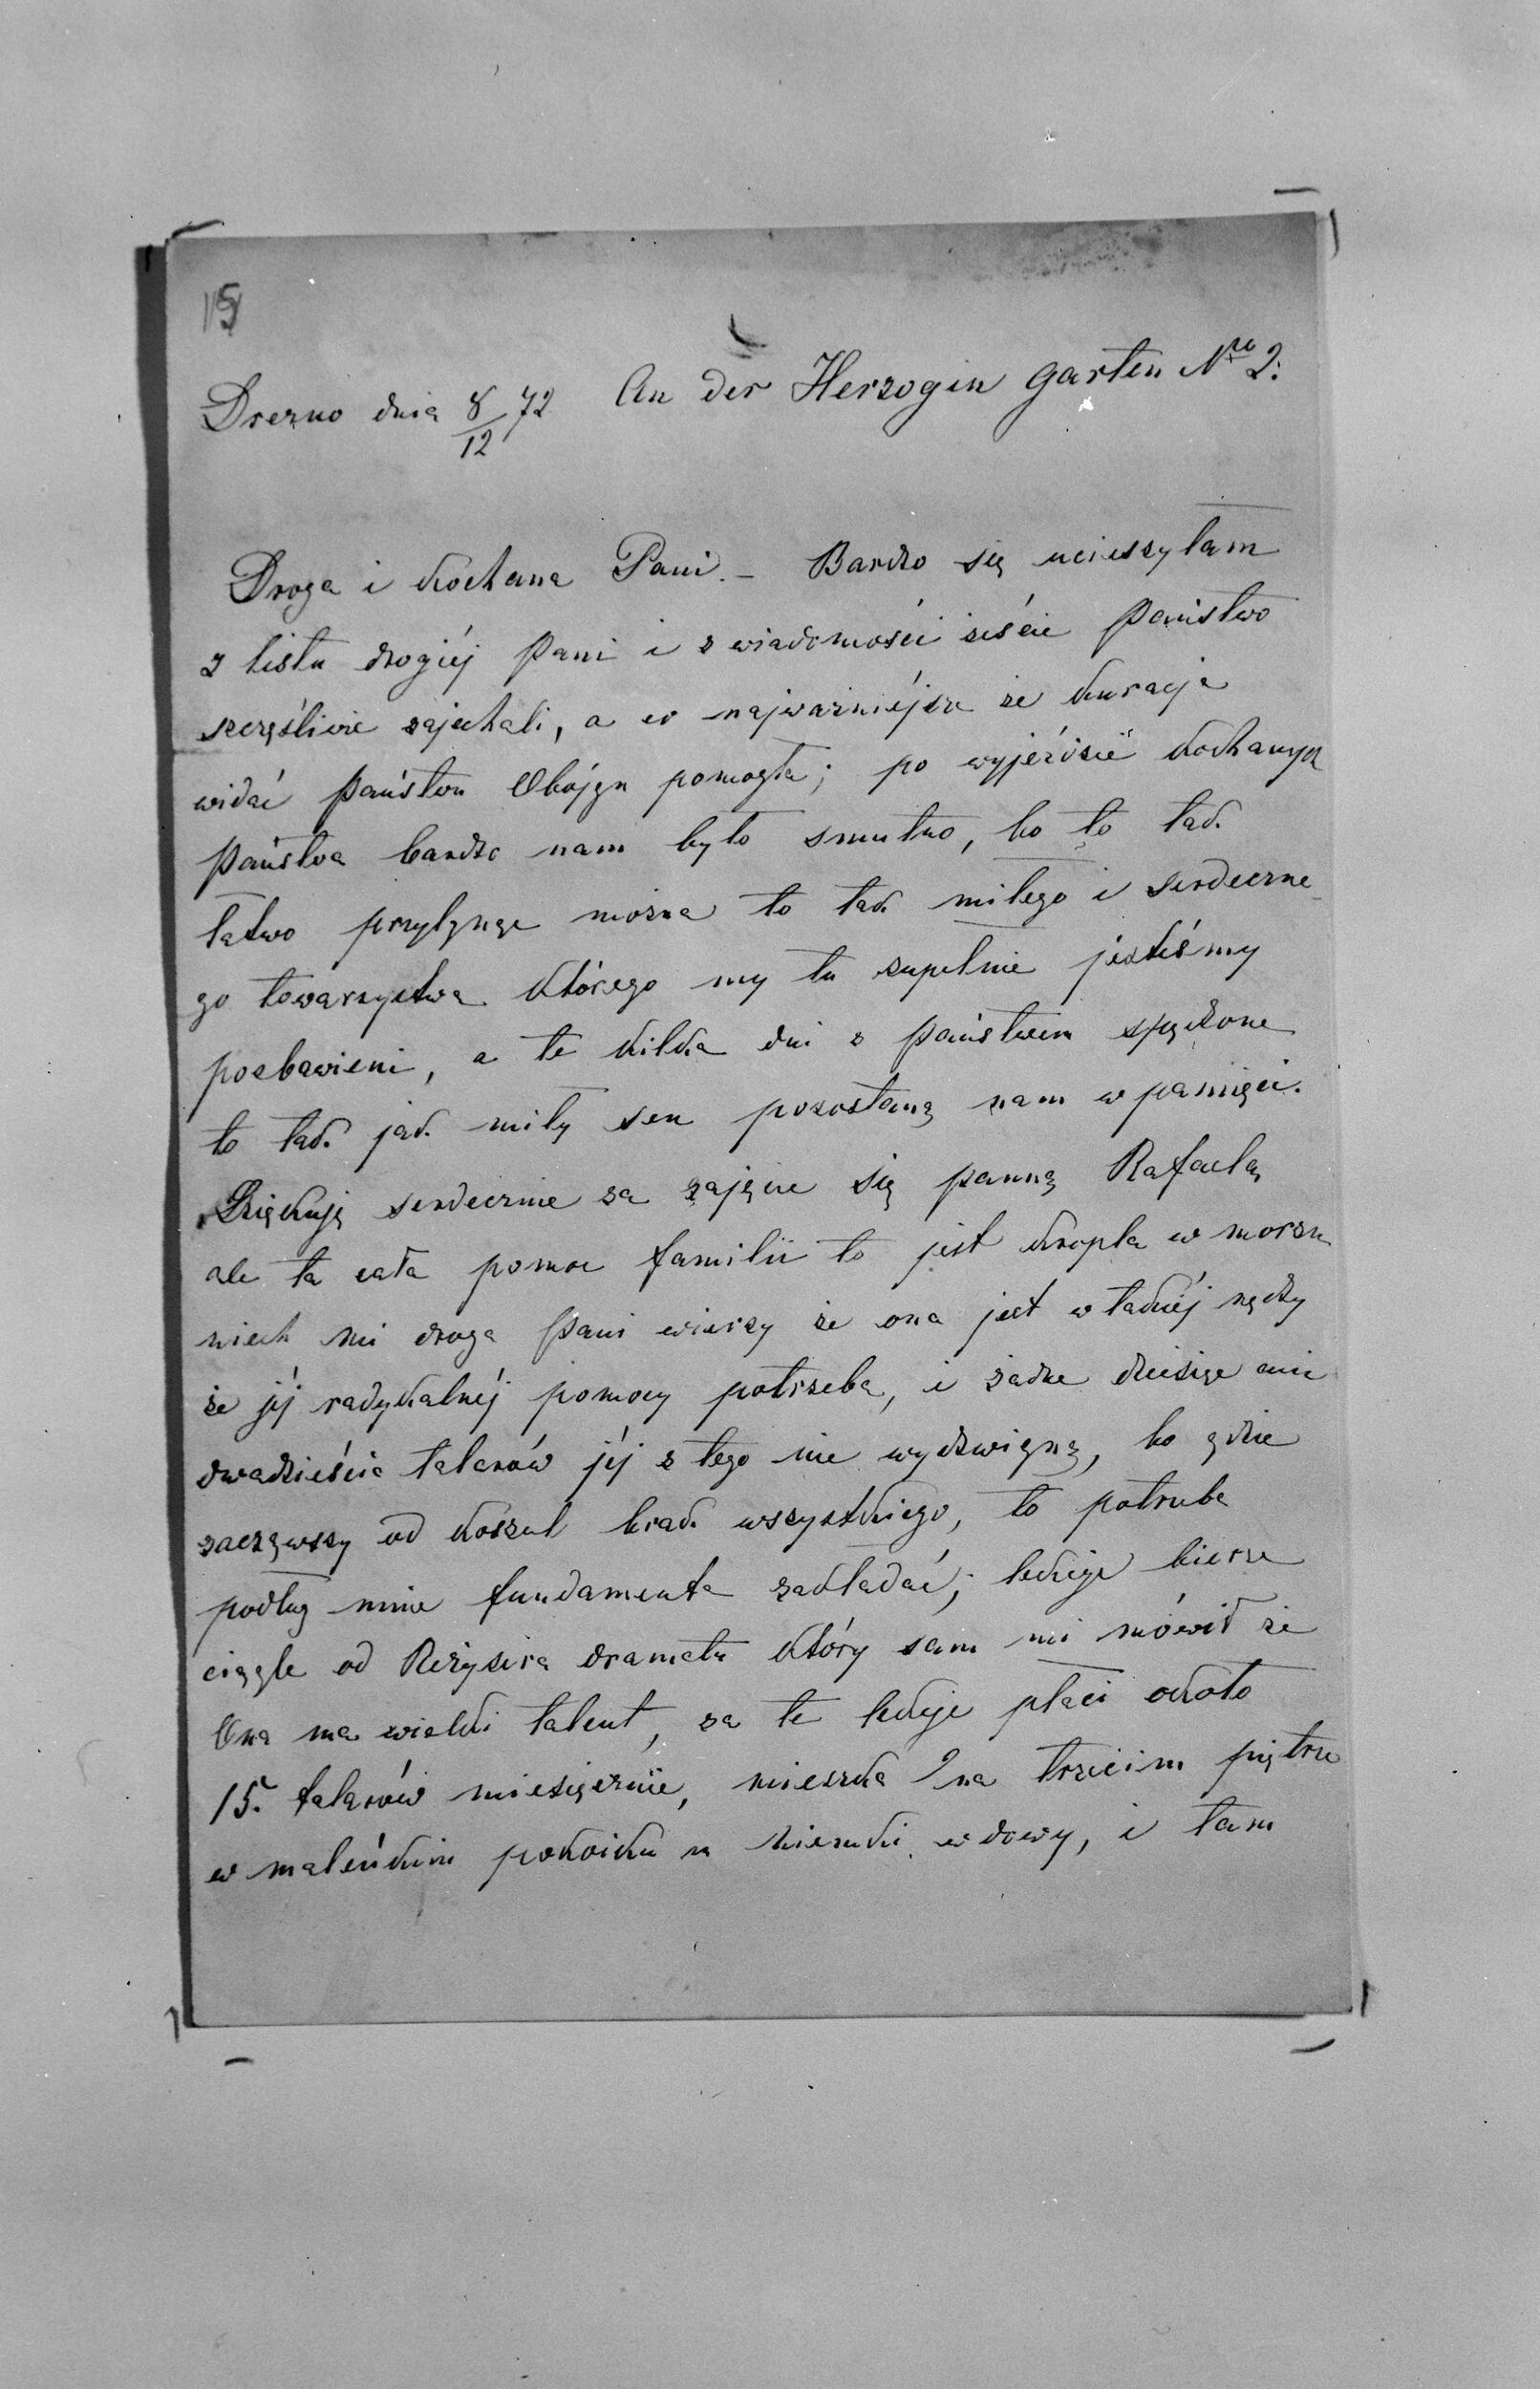 15
Drezno dnia 8/12 72 An der Herzogin Garten Nro 2.
Droga i kochana Pani. – Bardzo się ucieszyłam
z listu drogiéj Pani i z wiadomości żeście Państwo
szczęśliwie zajechali, a co najważniéjsze że kuracja
widać Państwu Obójgu pomogła; po wyjeździe kochanych
Państwa bardzo nam było smutno, bo to tak
łatwo przylgnąć można to tak miłego i serdeczne-
go towarzystwa którego my tu zupełnie jesteśmy
pozbawieni, a te kilka dni z Państwem spędzone
to tak jak miły sen pozostaną nam w pamięci.
Dziękuję serdecznie za zajęcie się panną Rafaelą
ale ta cała pomoc familii to jest kropla w morzu
niech mi droga Pani wierzy że ona jest w takiéj nędzy
że jéj radykalnéj pomocy potrzeba, i żadne dziesięć ani
dwadzieścia talarów jéj z tego nie wydźwigną, bo gdzie
zacząwszy od koszul brak wszystkiego, to potrzeba
podług mnie fundamenta zakładać; lekcje bierze
ciągle od Reżysera dramatu który sam mi mówił że
Ona ma wielki talent, za te lekcje płaci około
15. talarów miesięcznie, mieszka na trzeciem piętrze
w maleńkim pokoiku u Niemki wdowy, i tam